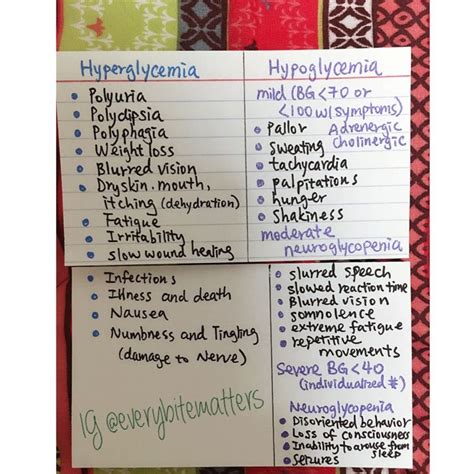 Hyperglycemia
• Polyuria
• Polydipsia
• Polyphagia
• Weight loss
• Blurred vision
• Dry skin, mouth,
itching (dehydration)
• Fatigue
• Irritability
• slow wound healing
• Infections
• Illness and death
• Nausea
• Numbness and Tingling
(damage to Nerve)
IG @everybitematters
Hypoglycemia
mild (BG<70 or
<100 w/ symptoms)
• Pallor Adrenergic
• sweating cholinergic
• tachycardia
• palpitations
• hunger
• Shakiness
moderate
neuroglycopenia
• slurred speech
• slowed reaction time
• Blurred vision
• somnolence
• extreme fatigue
• repetitive
movements
Severe BG<40
(individualized #)
Neuroglycopenia
• Disoriented behavior
• Loss of consciousness
• Inability to arouse from
sleep
• seizures